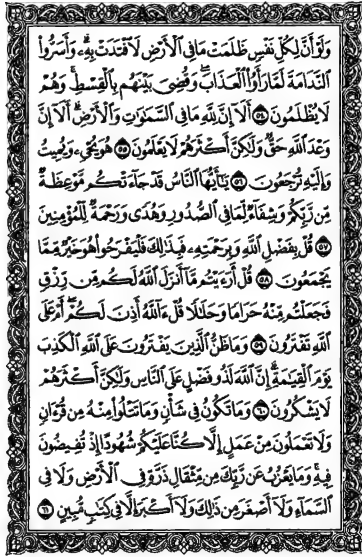 وَلَوْ أَنَّ لِكُلِّ نَفْسٍ ظَلَمَتْ مَا فِي ٱلْأَرْضِ لَٱفْتَدَتْ بِهِۦ ۗ وَأَسَرُّوا۟
ٱلنَّدَامَةَ لَمَّا رَأَوُا۟ ٱلْعَذَابَ ۖ وَقُضِىَ بَيْنَهُم بِٱلْقِسْطِ ۚ وَهُمْ
لَا يُظْلَمُونَ ٥٤ أَلَآ إِنَّ لِلَّهِ مَا فِي ٱلسَّمَـٰوَٰتِ وَٱلْأَرْضِ ۗ أَلَآ إِنَّ
وَعْدَ ٱللَّهِ حَقٌّ وَلَـٰكِنَّ أَكْثَرَهُمْ لَا يَعْلَمُونَ ٥٥ هُوَ يُحْىِۦ وَيُمِيتُ
وَإِلَيْهِ تُرْجَعُونَ ٥٦ يَـٰٓأَيُّهَا ٱلنَّاسُ قَدْ جَآءَتْكُم مَّوْعِظَةٌ
مِّن رَّبِّكُمْ وَشِفَآءٌ لِّمَا فِي ٱلصُّدُورِ وَهُدًى وَرَحْمَةٌ لِّلْمُؤْمِنِينَ
٥٧ قُلْ بِفَضْلِ ٱللَّهِ وَبِرَحْمَتِهِۦ فَبِذَٰلِكَ فَلْيَفْرَحُوا۟ هُوَ خَيْرٌ مِّمَّا
يَجْمَعُونَ ٥٨ قُلْ أَرَءَيْتُم مَّآ أَنزَلَ ٱللَّهُ لَكُم مِّن رِّزْقٍ
فَجَعَلْتُم مِّنْهُ حَرَامًا وَحَلَـٰلًا قُلْ ءَآللَّهُ أَذِنَ لَكُمْ ۖ أَمْ عَلَى
ٱللَّهِ تَفْتَرُونَ ٥٩ وَمَا ظَنُّ ٱلَّذِينَ يَفْتَرُونَ عَلَى ٱللَّهِ ٱلْكَذِبَ
يَوْمَ ٱلْقِيَـٰمَةِ ۗ إِنَّ ٱللَّهَ لَذُو فَضْلٍ عَلَى ٱلنَّاسِ وَلَـٰكِنَّ أَكْثَرَهُمْ
لَا يَشْكُرُونَ ٦٠ وَمَا تَكُونُ فِي شَأْنٍ وَمَا تَتْلُوا۟ مِنْهُ مِن قُرْءَانٍ
وَلَا تَعْمَلُونَ مِنْ عَمَلٍ إِلَّا كُنَّا عَلَيْكُمْ شُهُودًا إِذْ تُفِيضُونَ
فِيهِ ۚ وَمَا يَعْزُبُ عَن رَّبِّكَ مِن مِّثْقَالِ ذَرَّةٍ فِي ٱلْأَرْضِ وَلَا فِي
ٱلسَّمَآءِ وَلَآ أَصْغَرَ مِن ذَٰلِكَ وَلَآ أَكْبَرَ إِلَّا فِي كِتَـٰبٍ مُّبِينٍ ٦١